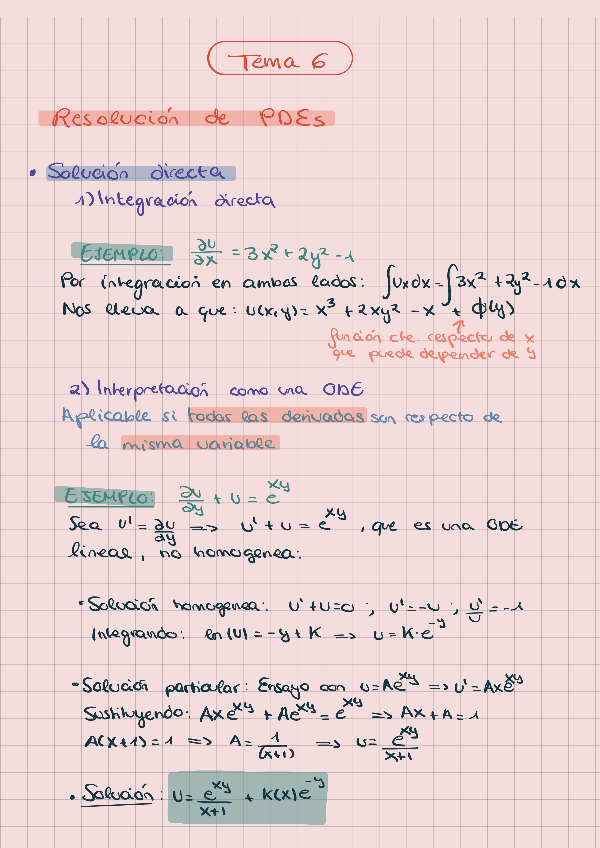 Tema 6
Resolución de PDEs
• Solución directa
1) Integración directa
EJEMPLO: ∂u/∂x = 3x² + 2y² - 1
Por integración en ambos lados: ∫Uxdx = ∫3x² + 2y² - 1 dx
Nos lleva a que: u(x,y) = x³ + 2xy² - x + ϕ(y)
función cte respecto de x
que puede depender de y
2) Interpretación como una ODE
Aplicable si todas las derivadas son respecto de
la misma variable
EJEMPLO: ∂u/∂y + u = e^xy
Sea u' = ∂u/∂y => u' + u = e^xy, que es una ODE
lineal, no homogenea:
• Solución homogenea: u' + u = 0 ; u' = -u ; u'/u = -1
Integrando: ln|u| = -y + K => u = K·e^-y
- Solución particular: Ensayo con u = Ae^xy => u' = Axe^xy
Sustituyendo: Axe^xy + Ae^xy = e^xy => Ax + A = 1
A(x+1) = 1 => A = 1/(x+1) => u = e^xy/x+1
• Solución: u = e^xy/x+1 + K(x)e^-y